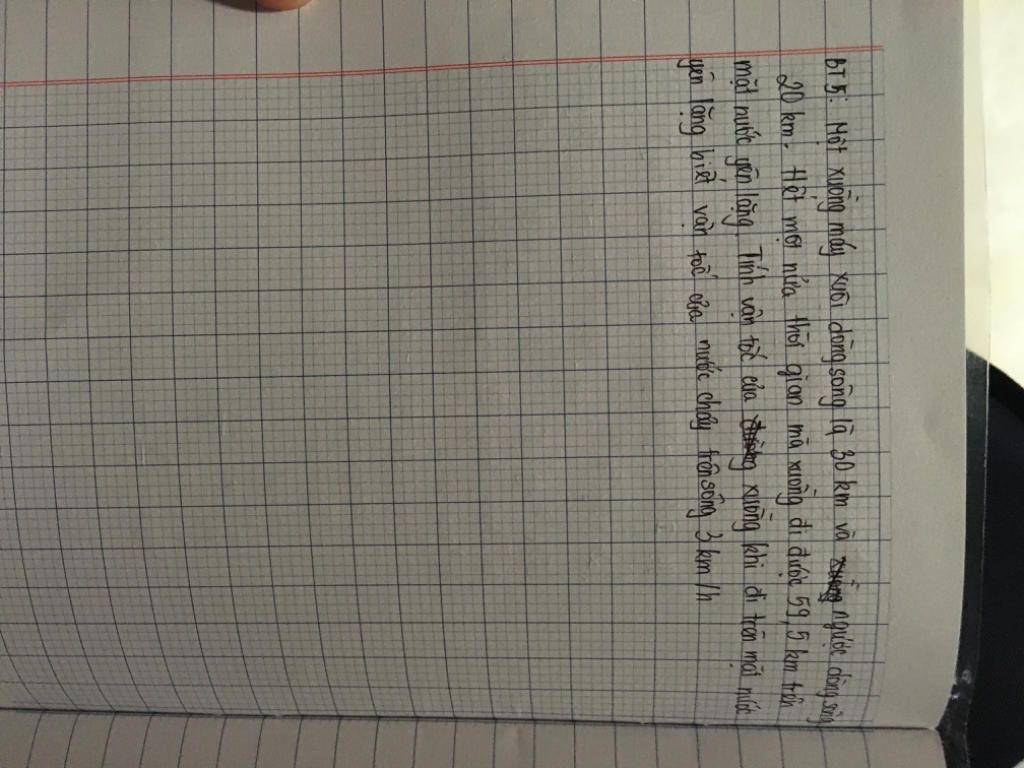 BT5: Một xuồng máy xuôi dòng sông là 30 km và ngược dòng sông
20 km. Hết mọi nửa thời gian mà xuồng đi được 59,5 km trên
mặt nước yên lặng. Tính vận tốc của xuồng khi đi trên mặt nước
yên lặng biết vận tốc của nước chảy trên sông 3 km/h